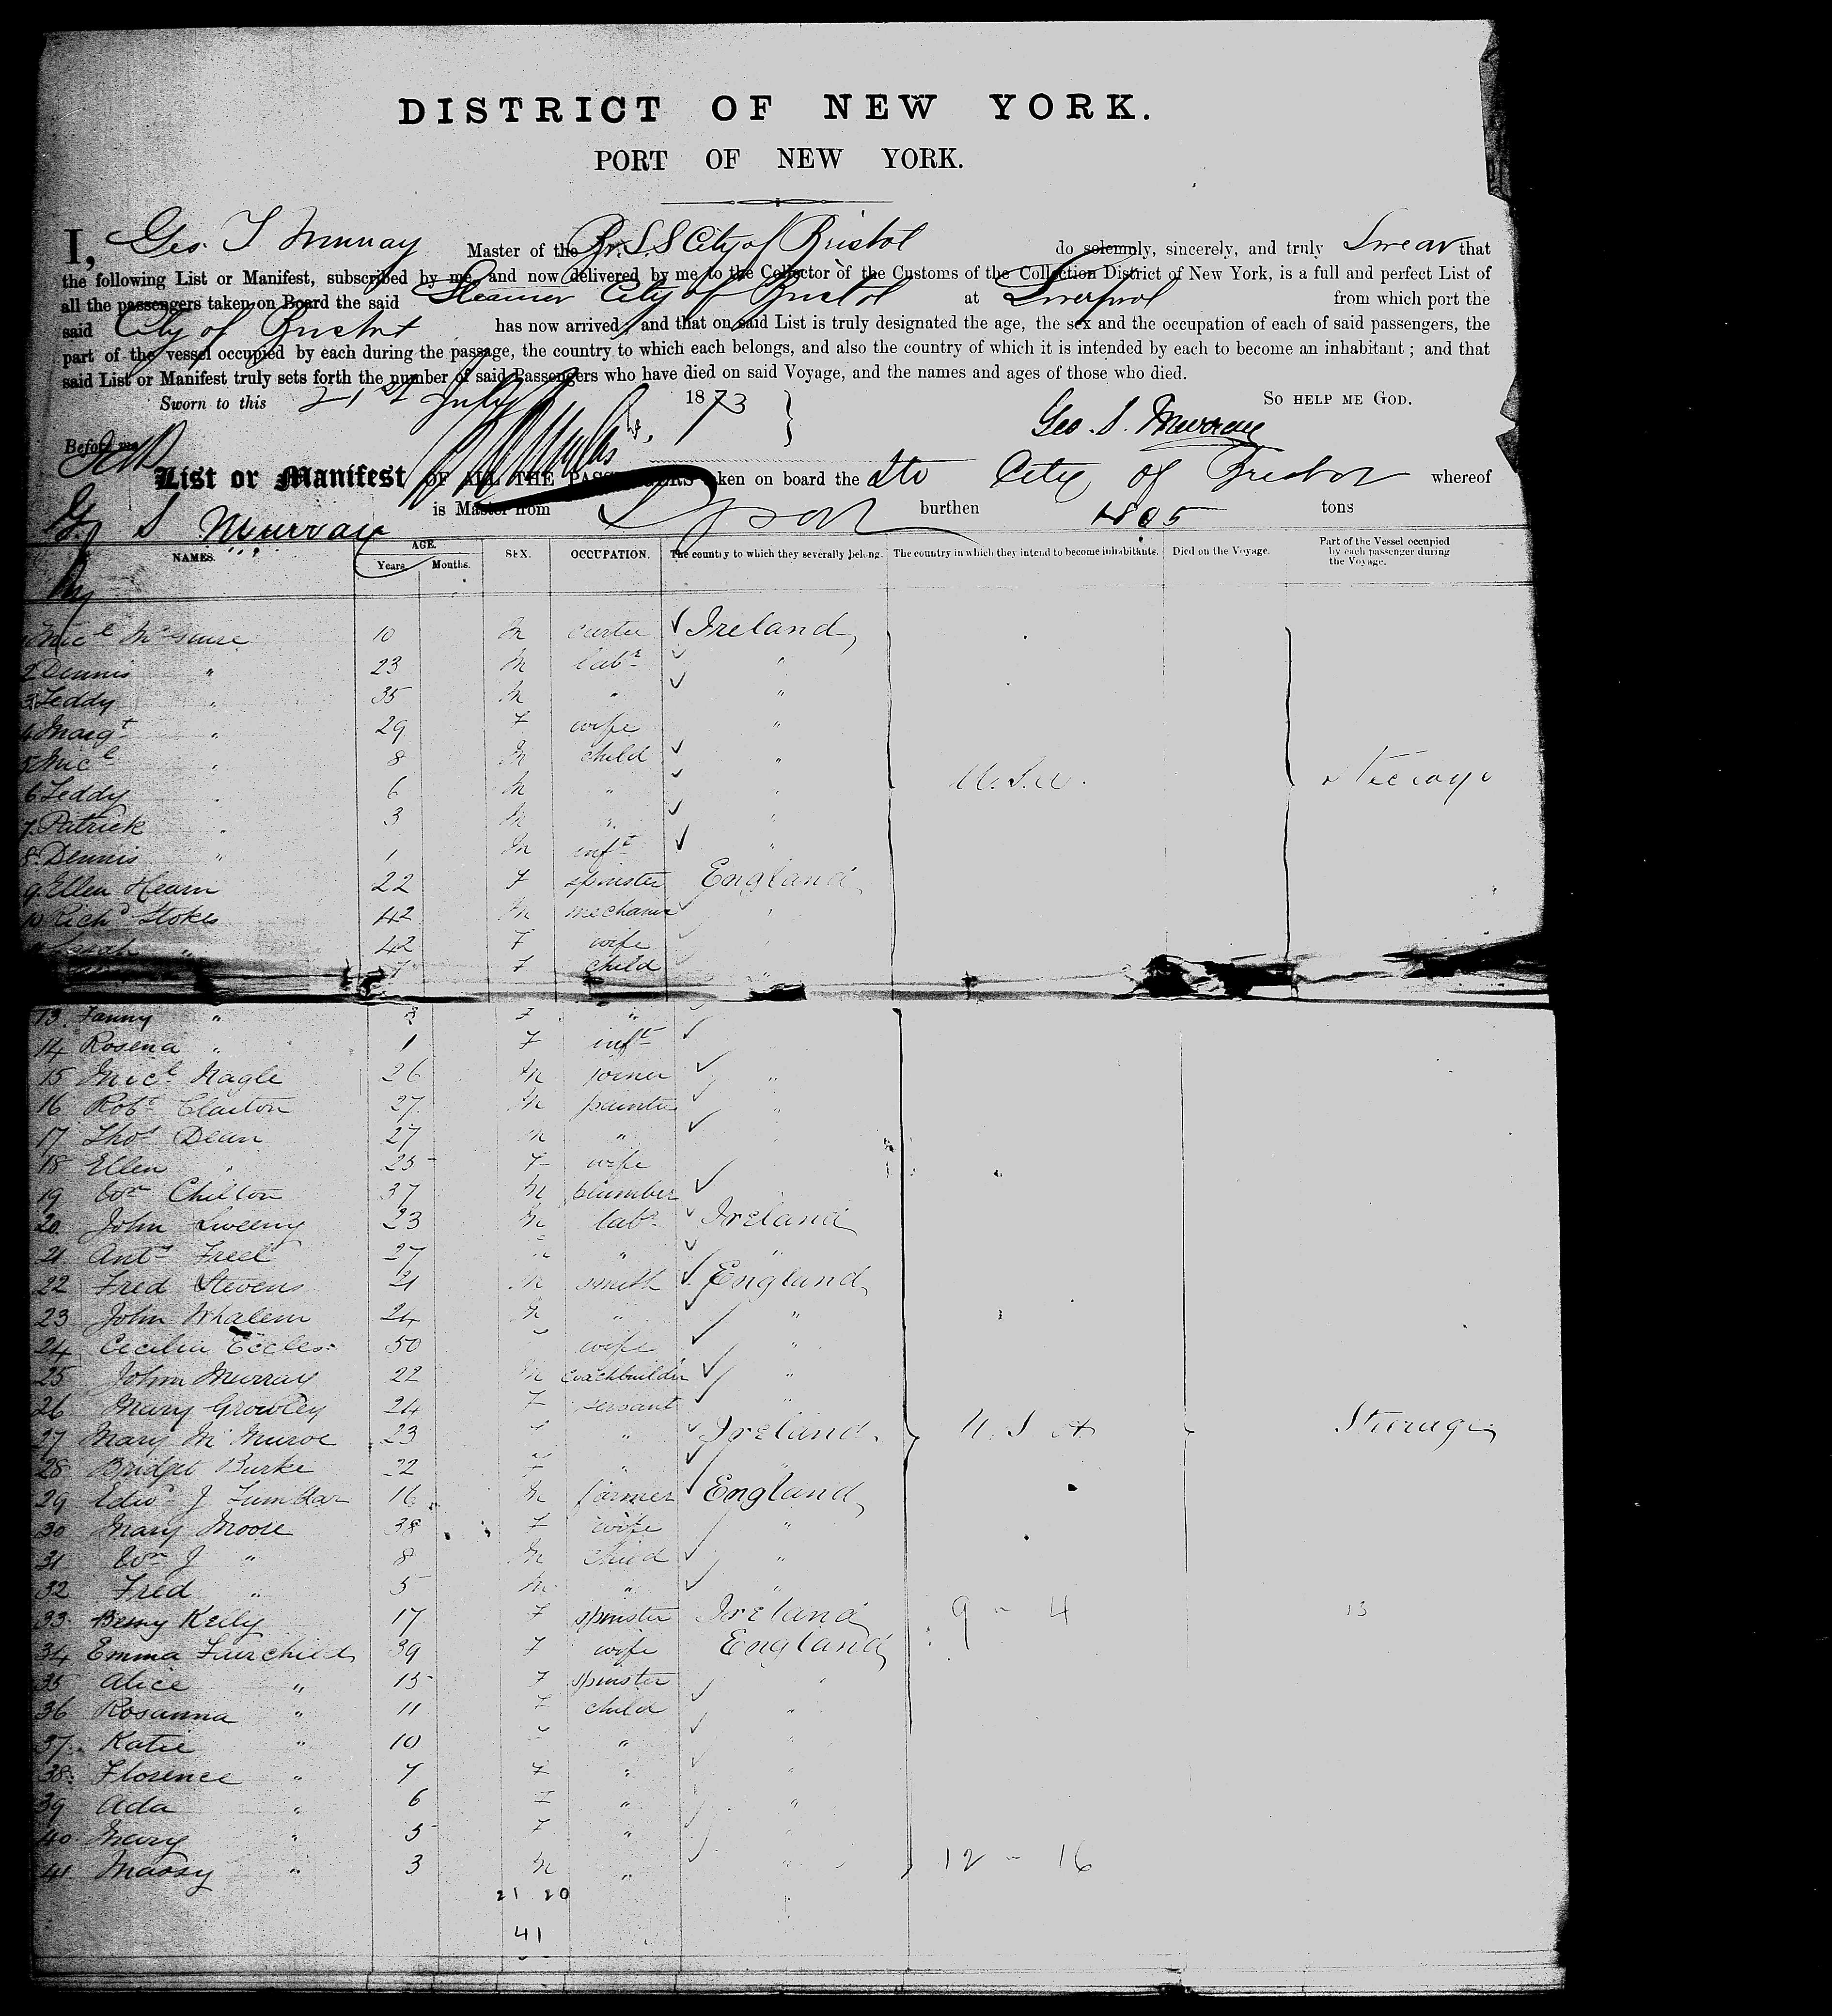 DISTRICT OF NEW YORK.
PORT OF NEW YORK.
I, Geo. S Murray Master of the Br. S.S City of Bristol do solemnly, sincerely, and truly Swear that
the following List or Manifest, subscribed by me, and now delivered by me to the Collector of the Customs of the Collection District of New York, is a full and perfect List of
all the passengers taken on Board the said Steamer City of Bristol at Liverpool from which port the
said City of Bristol has now arrived; and that on said List is truly designated the age, the sex and the occupation of each of said passengers, the
part of the vessel occupied by each during the passage, the country to which each belongs, and also the country of which it is intended by each to become an inhabitant; and that
said List or Manifest truly sets forth the number of said Passengers who have died on said Voyage, and the names and ages of those who died.
Sworn to this 21st July 1873 SO HELP ME GOD.
Geo. S. Murray
Before me
List or Manifest OF ALL THE PASSENGERS taken on board the Str City of Bristol whereof
G S Murray is Master from Lpool burthen tons
NAMES. AGE. Years. Months. SEX. OCCUPATION. The country to which they severally belong. The country in which they intend to become inhabitants. Died on the Voyage. Part of the Vessel occupied by each passenger during the Voyage.
Micl McGuire 10 M Ireland
2 Dennis " 23 M labr "
3 Teddy " 35 M " "
4 Margt " 29 F wife "
5 Micl " 8 M child "
6 Teddy " 6 M " " U.S.A. Steerage
7 Patrick " 3 M " "
8 Dennis " 1 M inft "
9 Ellen Hearn 22 F spinster England
10 Richd Stokes 42 M mechanic "
Sarah " 42 F wife "
7 F child "
13 Fanny " F "
14 Rosena " 1 F inft
15 Micl Nagle 26 M joiner "
16 Robt Claxton 27 M painter "
17 Thos Dean 27 M "
18 Ellen " 25 F wife
19 Wm Chilton 37 M plumber
20 John Sweeny 23 M labr Ireland
21 Anty Freel 27 M " "
22 Fred Stevens 21 M smith England
23 John Whalem 24 M " "
24 Cecilia Eccles 50 wife "
25 John Murray 22 M coachbuilder "
26 Mary Growley 24 F servant "
27 Mary McMuroe 23 " " Ireland U S A Steerage
28 Bridget Burke 22 F " "
29 Edwd J 16 M farmer England
30 Mary Moore 38 F wife "
31 Wm J " 8 M child "
32 Fred " 5 M " "
33 Kelly 17 F spinster Ireland 9 - 4 13
34 Emma Fairchild 39 F wife England
35 Alice " 15 F spinster "
36 Rosanna " 11 F child "
37 Katie " 10 " " "
38 Florence " 7 F " "
39 Ada " 6 F " "
40 Mary " 5 F " "
41 Massy " 3 M " " 12 - 16
21 20
41